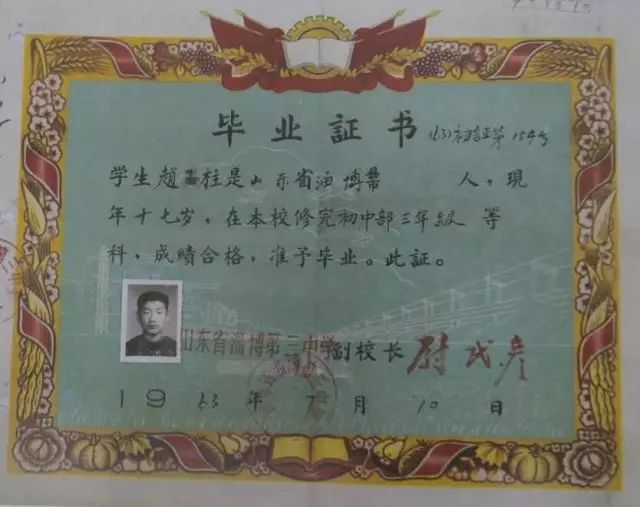 毕业証书
(63)初証字第154号
学生趙 柱是山东省淄博市 人，现
年十七岁，在本校修完初中部三年級 等
科，成績合格，准予毕业。此証。
山东省淄博第三中学副校长 尉
1963年7月10日